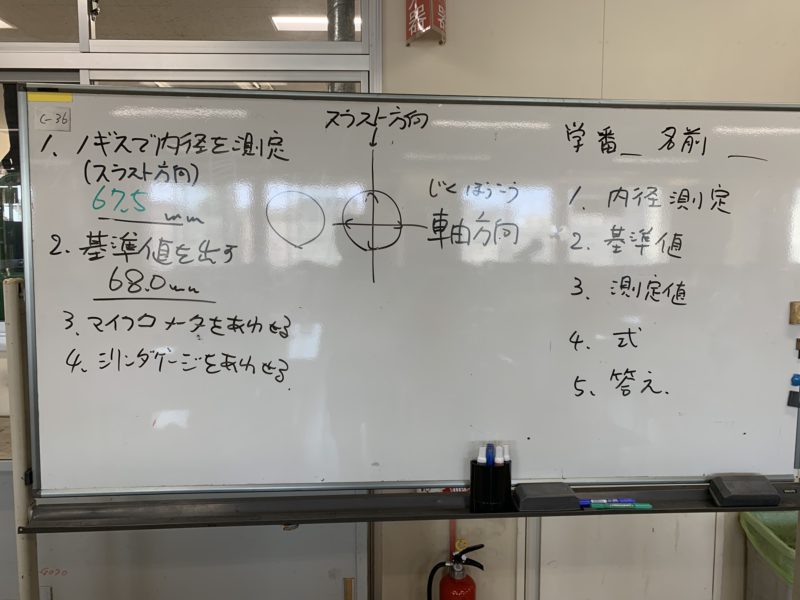 C-36
1. ノギスで内径を測定
(スラスト方向)
67.5 mm
2. 基準値を出す
68.0mm
3. マイクロメータをあわせる
4. シリンダゲージをあわせる
スラスト方向
じくほうこう
軸方向
学番__ 名前 __
1. 内径測定
2. 基準値
3. 測定値
4. 式
5. 答え.
器